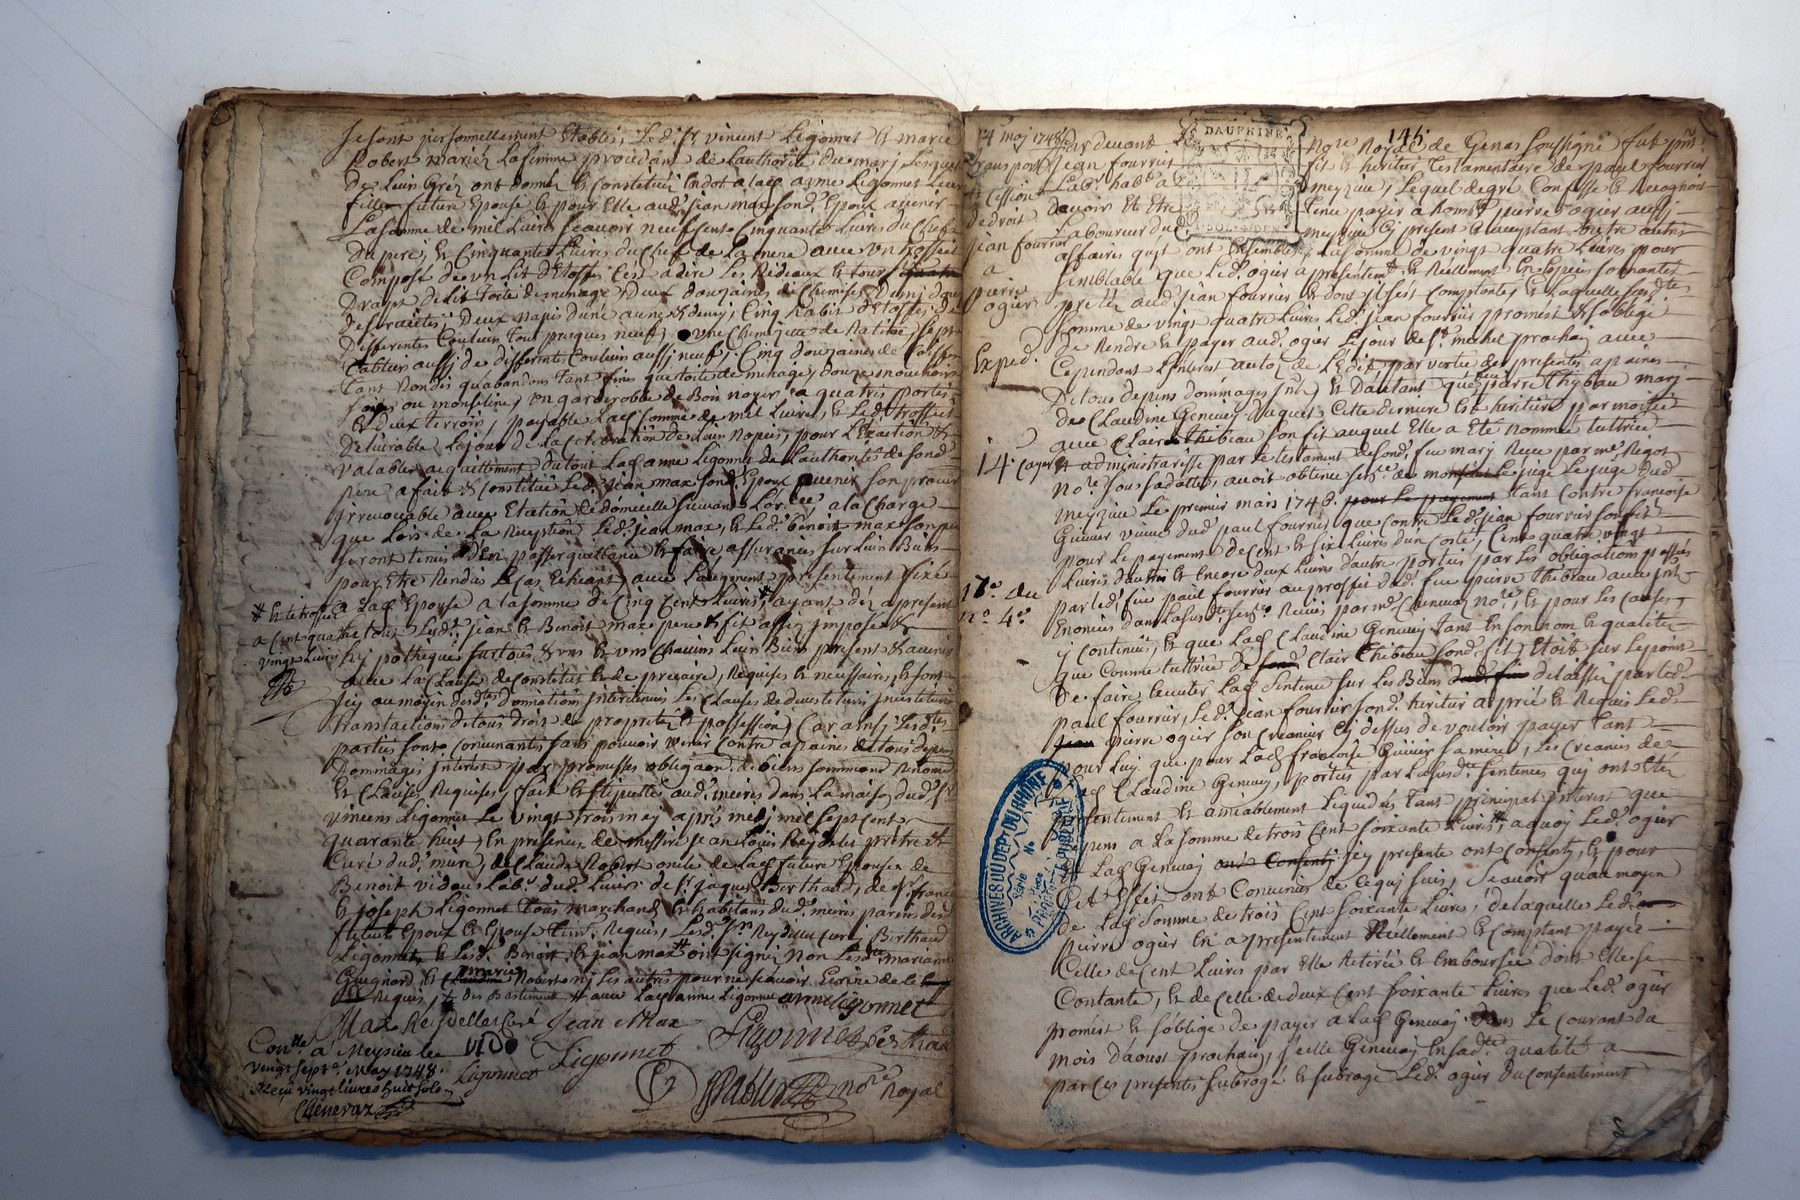 Se sont personnellement Etablis, Led. Sr. vincent Ligonnet & marie
Robert mariés La femme procedant de Lauthorité du mary Lesquels
De Leur Gréz ont donné & Constitué En dot a lad. anne Ligonnet Leur
fille future Epouse & pour Elle aud. jean max son d. Epoux avenir
La somme de mil Livres scavoir neuf cents Cinquante Livres du Chef
du pere, & Cinquante Livres du Chef de La mere avec un trossel
Composé de un Lit d'Etoffes C'est a dire Les Rideaux & tour
draps de Lit toile de menage Deux douzaines de Chemises, Demj douz
de serviettes, Deux napes d'une aune & demy, Cinq habits d'Etoffes de
differentes Couleurs tous presques neufs, une Chemisette de Ratine, sept
Tabliers aussj de differentes Couleurs aussj neufs, Cinq douzaines de Coiffes
tant Rondes qu'abandons tant fines que toile de menage, douze mouchoirs
soies ou mousseline, un garderobe de Bois noyer a quatre portes
& deux terroirs, payable Lad. somme de mil Livres, & Led. trossel
delivrable Le jour de La Celebration de Leurs nopces, pour L'Exaction &
valable acquittement du tout Lad. anne Ligonnet de L'authorité de son d.
pere a fait & Constitué Led. jean max son d. Epoux avenir son procur
jrrevocable avec Election de domicille suivant L'ord.ce, a la Charge
que Lors de La Reception Led. jean max, & Led. benoit max son pere
seront tenus d'En passer quittance & faire assurances sur Leurs Biens
pour Etre Rendus Le Cas Echeant avec L'augment presentement fixé
a Lad. Epouse a la somme de Cinq Cent Livres # ayant déz a present
# & le trossel
a Cent quatre
vingt Livres
Lesd. jean & Benoit max pere & fils assis jmposé &
hypothequé sur tous & uns & uns Chacuns Leurs Biens present & avenir
avec La Clause de Constitut & de precaire, Requises & necessaires,
au moyen desd.tes donnations Intervenues Les Clauses de devestiture jnvestiture
translaction de tous droits de proprieté & possession, Car ainsj Lesd.tes
parties sont Convenantes sans pouvoir venir Contre a peine de tous depens
Dommages jnterest par promesses obligaon de biens soumissions Renonc
& Clauses Requises, fait & stipullé aud. meires dans La maison dud. Sr.
vincent Ligonnet Le vingt trois may aprés midj mil sept cent
quarante huit En presence de messire jean Loüis Reydellet prêtre &
Curé dud. mure, de Claude Robert oncle de Lad. future Epouse de
Benoit vidou Lab.r dud. Lieu, de Sr. jaques Berthaud, de Sr. franc
& joseph Ligonnet tous marchands & habitans dud. meires parens desd
futurs Epoux & Epouse tem. Requis, Lesd. Srs. Reydellet curé Berthaud
Ligonnets & Lesd. Benoit, & jean max ont signé non Lesd.ttes marianne
Guignard & marie Robert nj Les autres pour ne scavoir Ecrire de ce
Requis, & avec Lad. anne Ligonnet anne ligonnet
Max Reydellet Curé Jean Max
VIDO Ligonnet Berthaud
Ligonnet Ligonnet
Con.lle a Meysieu le
vingt sept.e May 1748.
Reçu vingt livres huit sols
Chenevaz
no.re Royal
145.
DAUPHINE
24e maj 1748
transport
& Cession
de droit
jean fourrier
a
pierre
ogier
Exped.
14. Cayer
17e. du
no. 4e.
Par devant no.re Royal de Genas soussigné fut pnt
jean fourrier fils & heritier testamentaire de paul fourrier
Lab.r hab.t a meyzieu, Lequel de gré Confesse & Recognoit
devoir & Etre tenu payer a hom. pierre ogier aussj
Laboureur du meyzieu Cj present & acceptant outre autres
affaires qu'jls ont Ensemble, La somme de vingt quatre Livres pour
semblable que Led. ogier a presentem.t & Reellement En Especes sonnantes
pretté aud. jean fourrier & dont jl s'est Contenté, & Laquelle sus.dte
somme de vingt quatre Livres Led. jean fourrier promest & s'oblige
de Rendre & payer aud. ogier Le jour de St. michel prochain avec
Cependant L'jnterest au taux de L'Edit par vertu des presentes a peine
De tous depens dommages jnt. & D'autant que feu pierre thybeau marj
de Claudine Genevey duquel Cette derniere Est heritiere par moitié
avec Claire thibeau son fils auquel Elle a Eté nommée tuttrice
& administraresse par Le testament de son d. feu mary Recu par me. Rigot
no.re sous sa datte, avoit obtenu sent.ce de Le juge Le juge dud.
meyzieu Le premier mars 1748. pour Le payement tant Contre françoise
Guinier veuve dud. paul fourrier que Contre Led. jean fourrier son fils
pour Le payement de Cent & six Livres d'un Costé, Cent quatre vingt
Livres d'autres & encore deux Livres d'autre portées par Les obligations passées
par led. feu paul fourrier au proffit dud. feu pierre thibeau avec jnt.
Enoncées dans La sus.dte sent.ce Recues par me. Chenevaz no.re, & pour Les Causes
y Contenues, & que Lad. Claudine Genevey tant En son nom & qualité
que Comme tuttrice de Clair thibeau son d. fils Etoit sur Le point
de faire Executer Lad. sentence sur Les Biens delaissés par Led.
paul fourrier, Led. jean fourrier son d. heritier a prié & Requis Led.
pierre ogier son Creancier Cj dessus de vouloir payer tant
pour Luj que pour Lad. francoise Guinier sa mere, Les Creances de
Lad. Claudine Genevey, portées par La sus.dte sentence quj ont Eté
presentement & amiablement Liquidées tant principal jnterest que
depens a La somme de trois Cent soixante Livres, a quoy Led. ogier
& Lad. Genevey jcy presente ont Consenti, & pour
Cet Effet ont Convenus de Ce quj suit, scavoir qu'au moyen
de Lad. somme de trois Cent soixante Livres, de laquelle Led.
pierre ogier En a presentement Reellement & Comptant payé
Celle de Cent Livres par Elle Retirée & Emboursée dont Elle se
Contante, & de Celle de deux Cent soixante Livres que Led. ogier
promest & s'oblige de payer a Lad. Genevey dans Le Courant du
mois d'aoust prochain, jcelle Genevey En sad.tte qualité a
par Ces presentes subrogé & subroge Led. ogier du Consentement
ARCHIVES DU DEPt. DU RHÔNE
Série
No
PROPRIÉTÉ PUBLIQUE